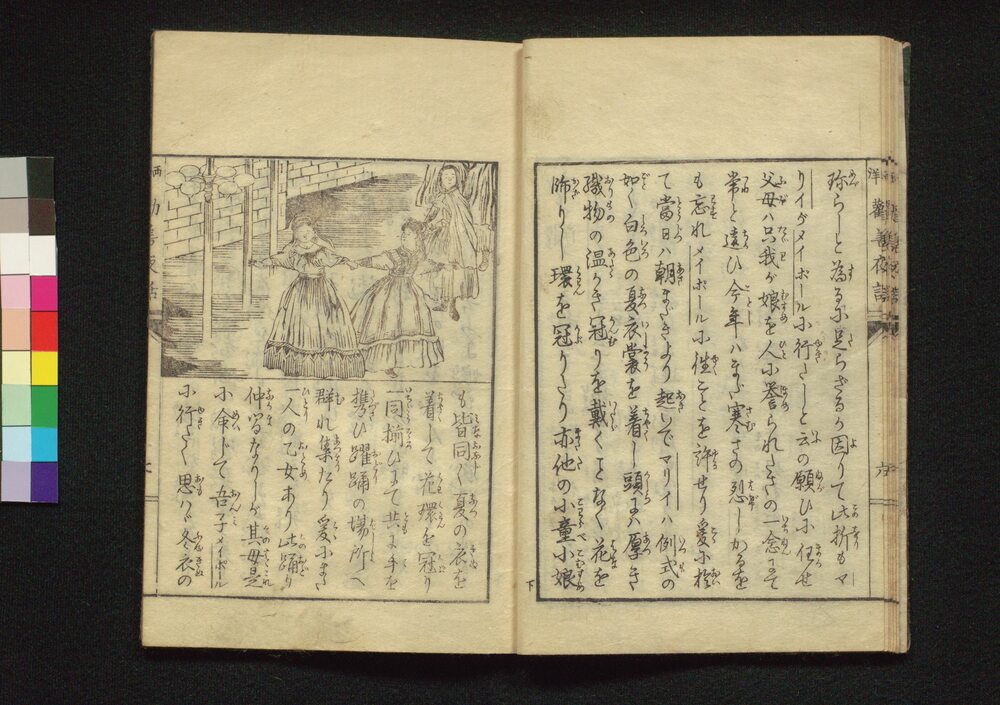 弥らしと為るに足らざるか因りて此折もマ
リイがメイポールに行たしと云の願ひに任せ
父母ハ只我が娘を人に誉られたきの一念にて
常と違ひ今年ハまだ寒さの烈しかるを
も忘れメイポールに往ことを許せり爰に於
て當日ハ朝まだきより起いでマリイハ例式の
如く白色の夏衣裳を着し頭にハ厚き
織物の温かき冠りを戴くことなく花を
飾りし環を冠りたり亦他の小童小娘
も皆同く夏の衣を
着して花環を冠り
一同揃ひにて共に手を
携ひ躍踊の場所へ
群れ集たり爰にまた
一人の乙女あり此踊り
仲間なりしが其母是
に命じて吾子メイポール
に行たく思ハゞ冬衣の
洋
勸善夜話
六
下